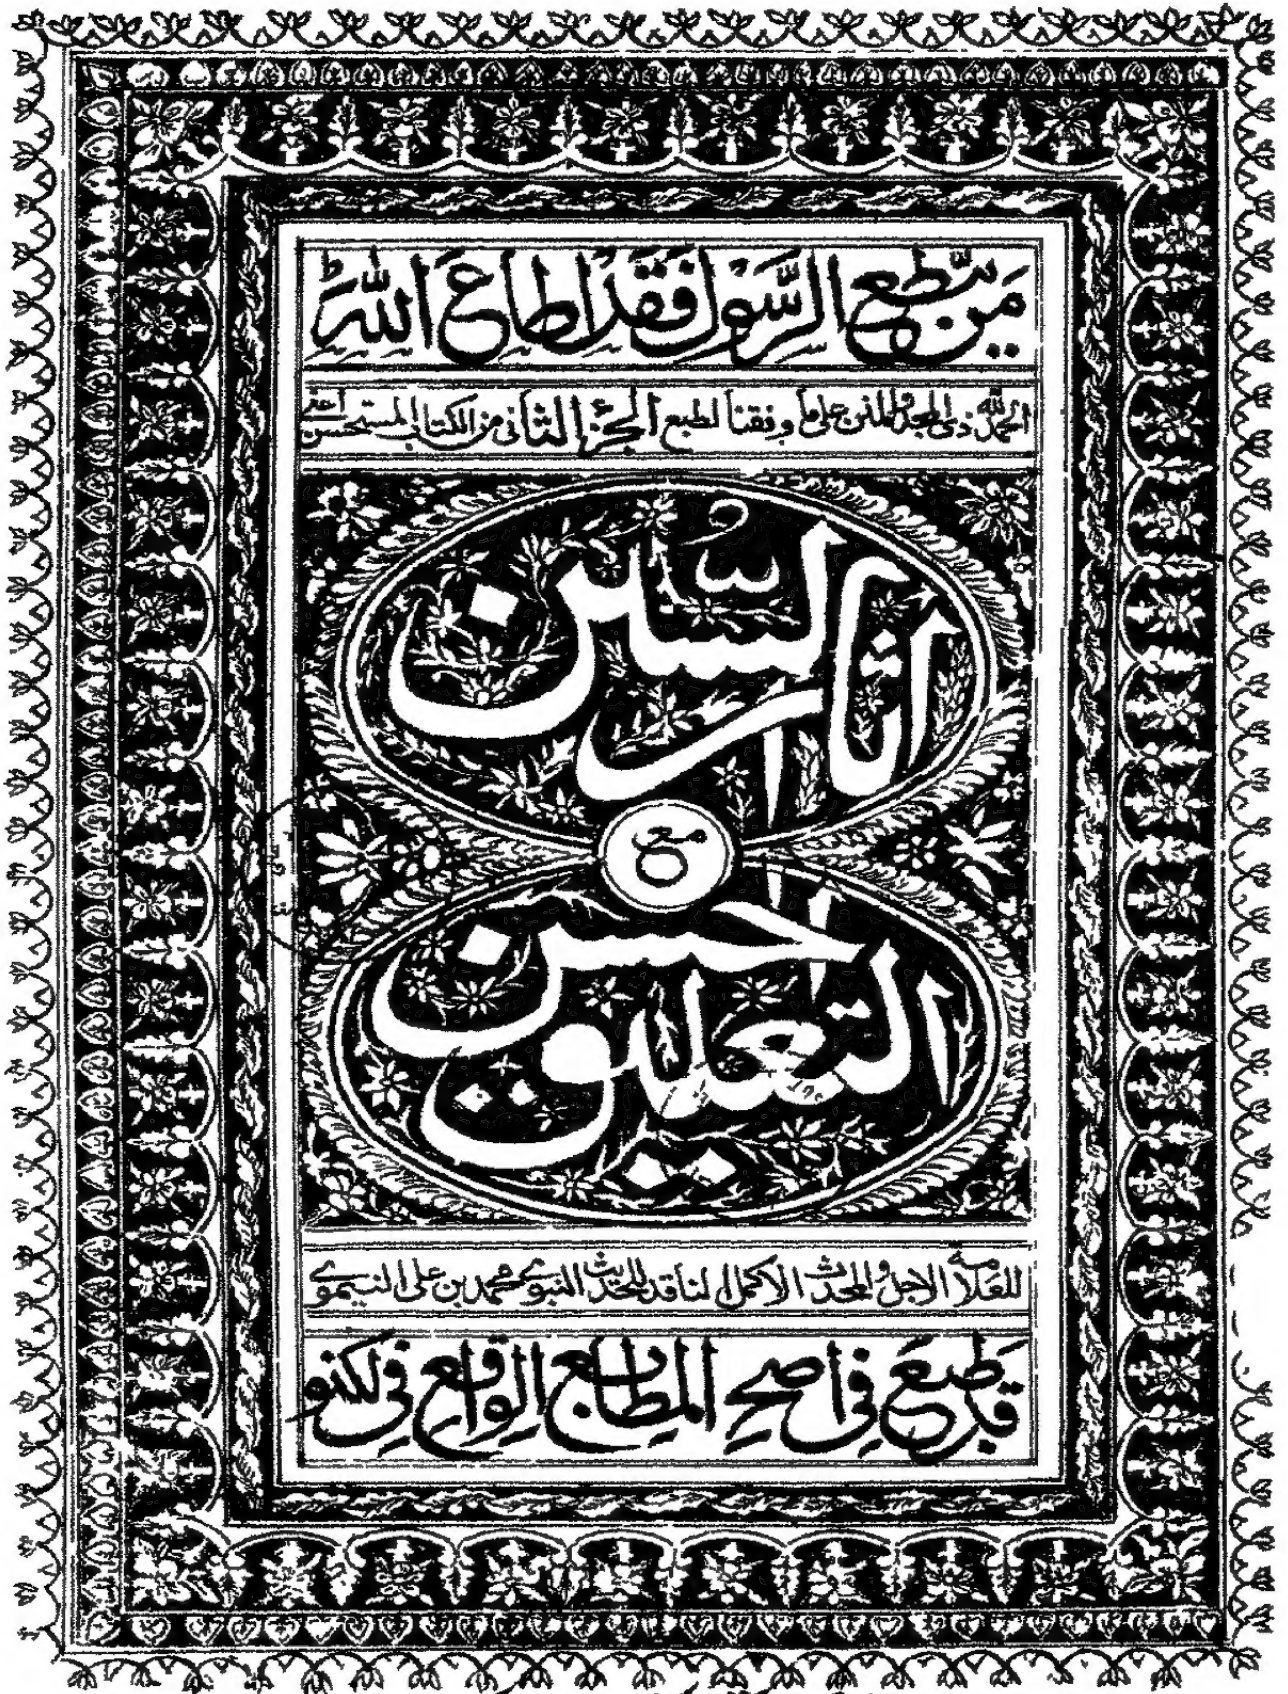 مَن يُّطِعِ الرَّسُوْلَ فَقَدْ اَطَاعَ اللّٰهَ
الحمد لله ذى المجد والمنن على ما وفقنا لطبع الجزء الثانى من الكتاب المستحسن اعنى
اٰثار السّنن
مع
التعليق الحسن
للعلامة الاجل والمحدث الاكمل الناقد للحديث النبوى محمد بن على النيموى
قد طبع فى اصح المطابع الواقع فى لكنو